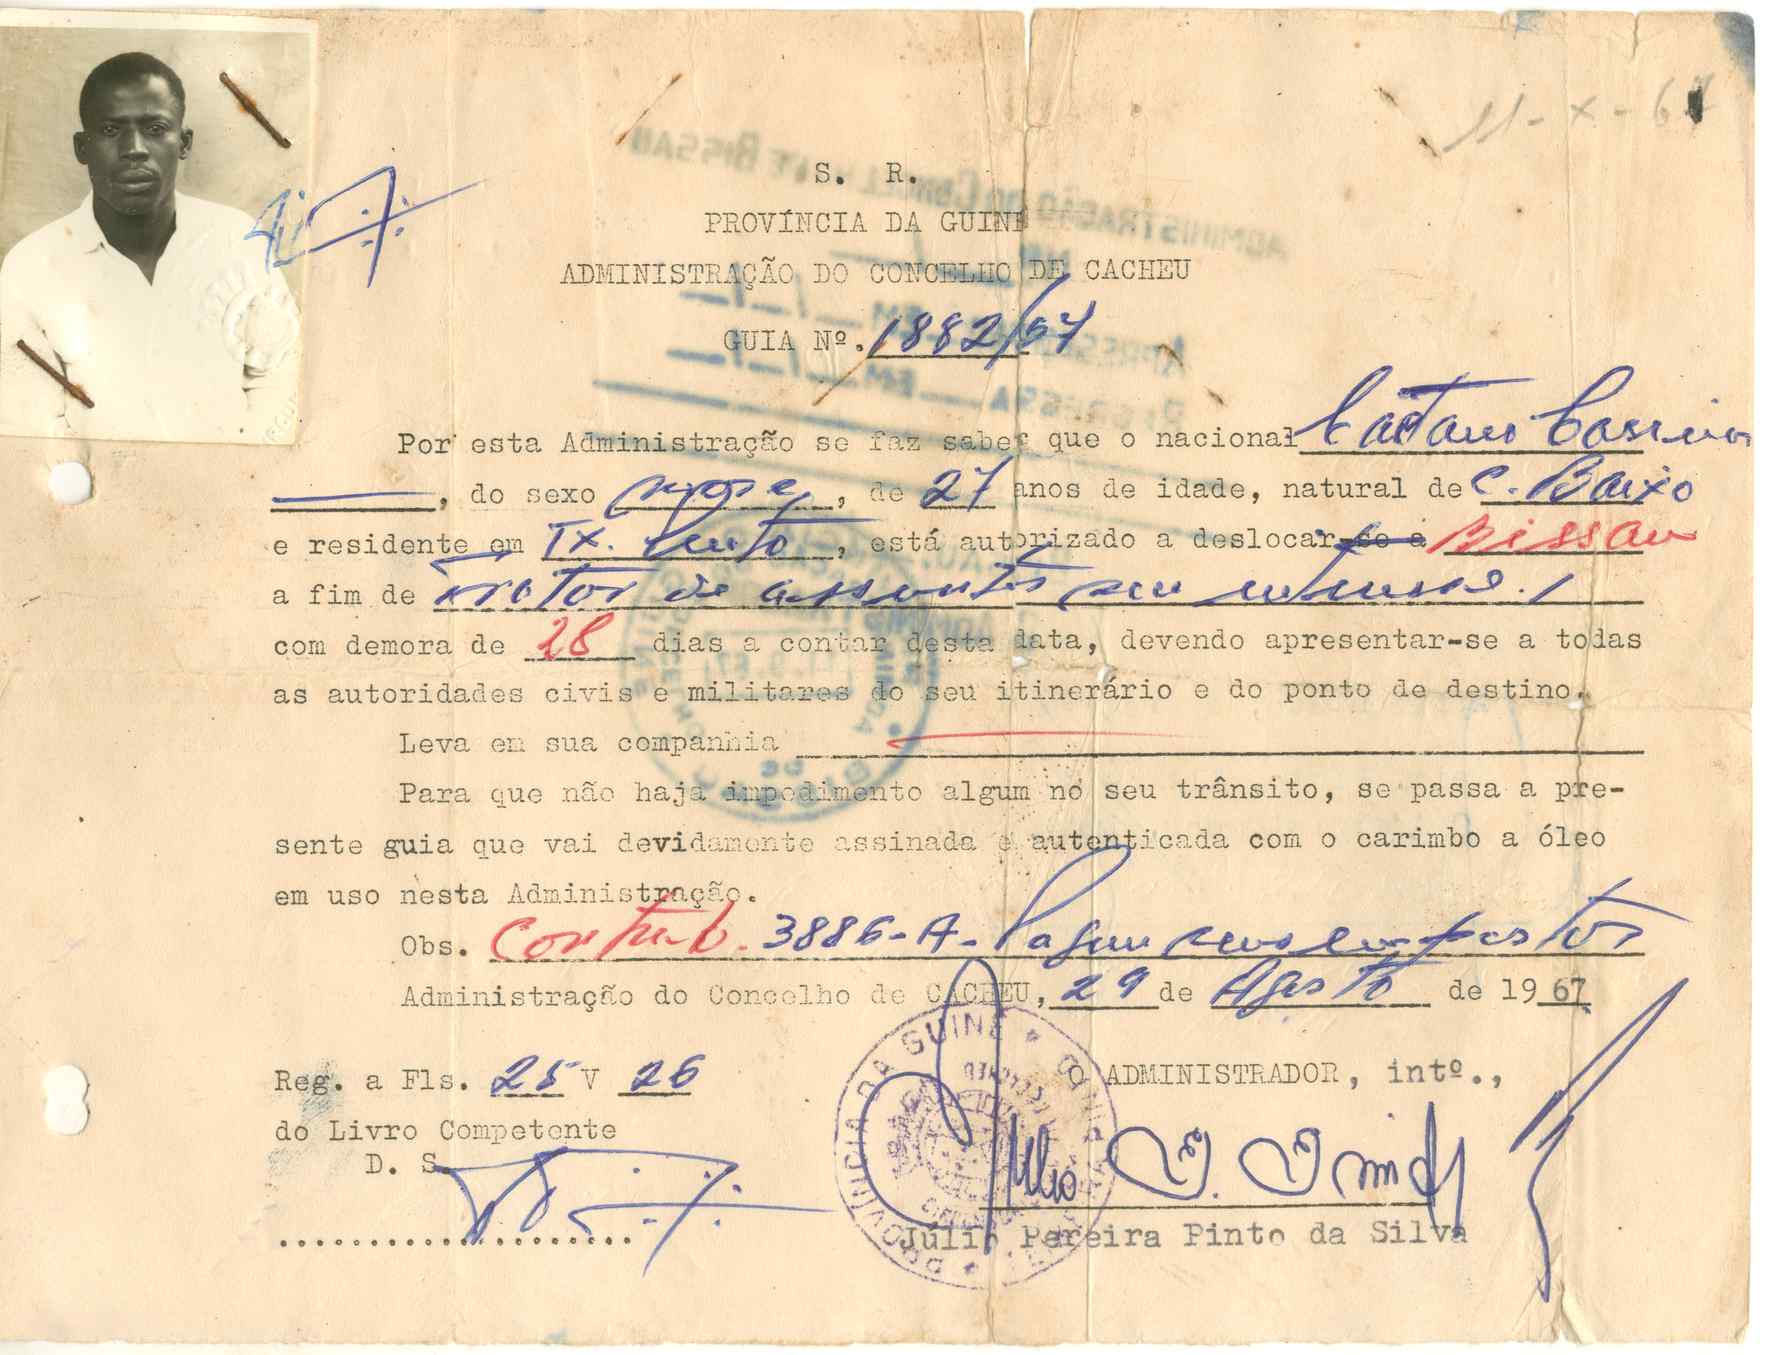 11-X-67
S. R.
PROVÍNCIA DA GUINÉ
ADMINISTRAÇÃO DO CONCELHO DE CACHEU
GUIA Nº. 1882/67
Por esta Administração se faz saber que o nacional Caetano
, do sexo , de 27 anos de idade, natural de C. Baixo
e residente em TX. , está autorizado a deslocar-se a Bissau
a fim de tratar de assuntos seu interesse.
com demora de 28 dias a contar desta data, devendo apresentar-se a todas
as autoridades civis e militares do seu itinerário e do ponto de destino.
Leva em sua companhia
Para que não haja impedimento algum no seu trânsito, se passa a pre-
sente guia que vai devidamente assinada e autenticada com o carimbo a óleo
em uso nesta Administração.
Obs. Contrib. 3886-A- Pagou seus impostos
Administração do Concelho de CACHEU, 29 de Agosto de 1967
Reg. a Fls. 25 V 26
do Livro Competente
D. S.
O ADMINISTRADOR, intº.,
Júlio Pereira Pinto da Silva
PROVÍNCIA DA GUINÉ